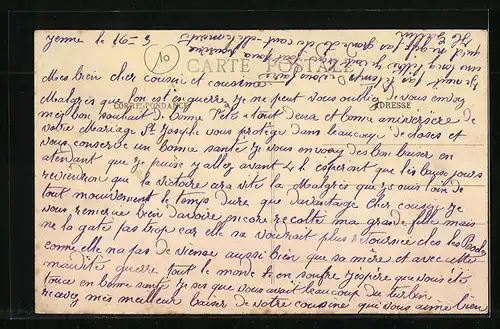 Yenne le 16 - 3
10
CARTE POSTALE
CORRESPONDANCE
ADRESSE
Mes bien cher cousin et cousine
Malgrés que lon est en guerre Je ne peut vous oublier de vous envoy
mei bon souhait de bonne fete a tout deux et bonne aniversère de
votre Mariage St Joseph vous protège dans beaucoup de closes et
vous conserve un bonne santé Je vous envoy des bon baiser en
atendant que je puisse y allez avant esperont que les beaux jours
reviendron que la victoire cra vite la Malgrés que je suis loin de
tout mouvement le temps dure que davantauge cher cousin je
vous remercie bien davoire encore récolté ma grande fille mais
ne la gate pas trop car elle va vouhrait plus retournsée ches les Boches
comme elle na pas de viense aussi bien que sa mère et avec cette
maudite guerre tout le monde en souffre Jespère que vous ète
tous en bonne santé Je ses que vous avait beaucoup du turbin
recevez mes meilleur baiser de votre cousine qui vous aime bien